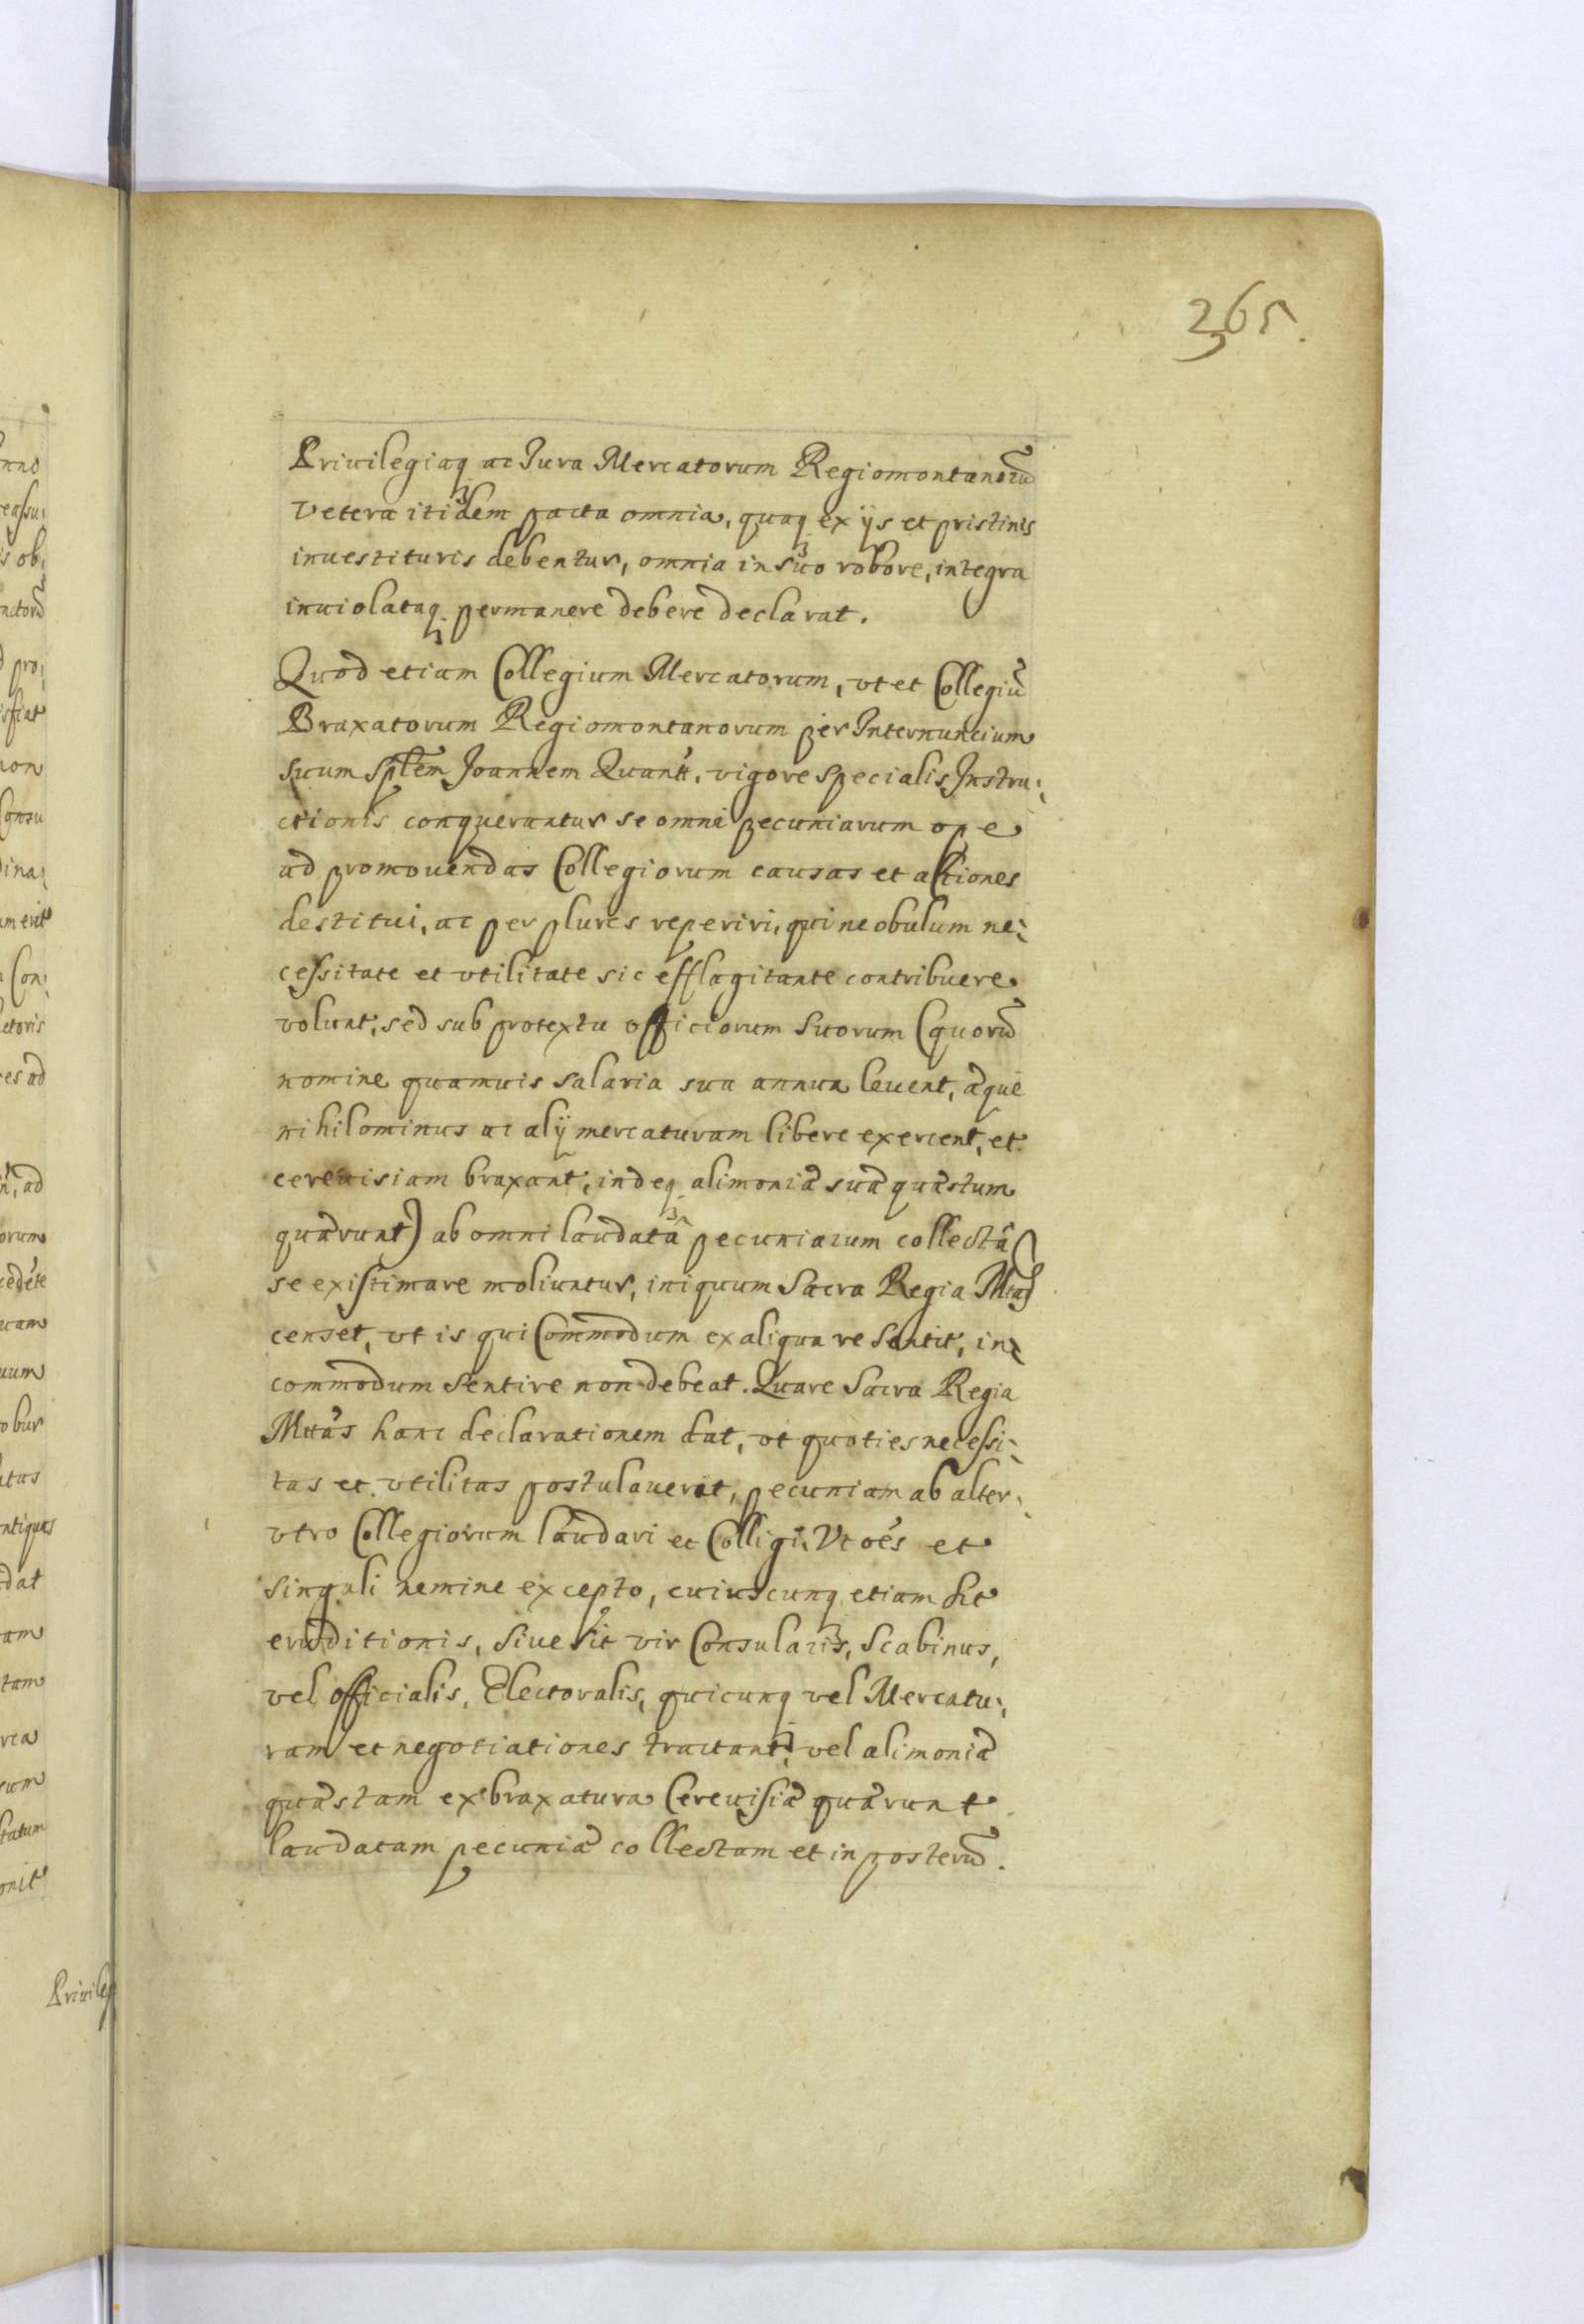 365.
Priuilegiaq; ac Jura Mercatorum Regiomontanorũ
Vetera itidem pacta omnia, quaq; ex ijs et pristinis
inuestituris debentur, omnia in suo robore, integra
inuiolataq; permanere debere declarat.
Quod etiam Collegium Mercatorum, vt et Collegiũ
Braxatorum Regiomontanorum per Internuncium
suum Spłem Joannem Quantt, vigore specialis Instru:
ctionis conqueruntur se omni pecuniarum ope
ad promouendas Collegiorum causas et actiones
destitui, ac per plures reperiri, qui ne obulum ne:
cessitate et vtilitate sic efflagitante contribuere
volunt, sed sub protextu officiorum suorum (quorũ
nomine quamuis salaria sua annua leuent, æque
nihilominus ac alij mercaturam libere exercent, et
cereuisiam braxant, indeq; alimoniæ suæ quæstum
quærunt) ab omni laudatâ pecuniarum collectâ
se existimare moliuntur, iniquum Sacra Regia Mtas
censet, vt is qui Commodum ex aliqua re sentit, in:
commodum sentire non debeat. Quare Sacra Regia
Mttas hanc declarationem dat, vt quoties necessi:
tas et vtilitas postulauerit, pecuniam ab alter:
vtro Collegiorum laudari et Colligi. Vt oes et
singuli nemine excepto, cuiuscunq; etiam sit
eruditionis, siue sit vir Consularis, Scabinus,
vel officialis, Electoralis, quicunq; vel Mercatu:
ram et negotiationes tractant, vel alimoniæ
quæstam ex braxatura Cereuisiæ quærunt
laudatam pecuniæ collectam et in posterũ.